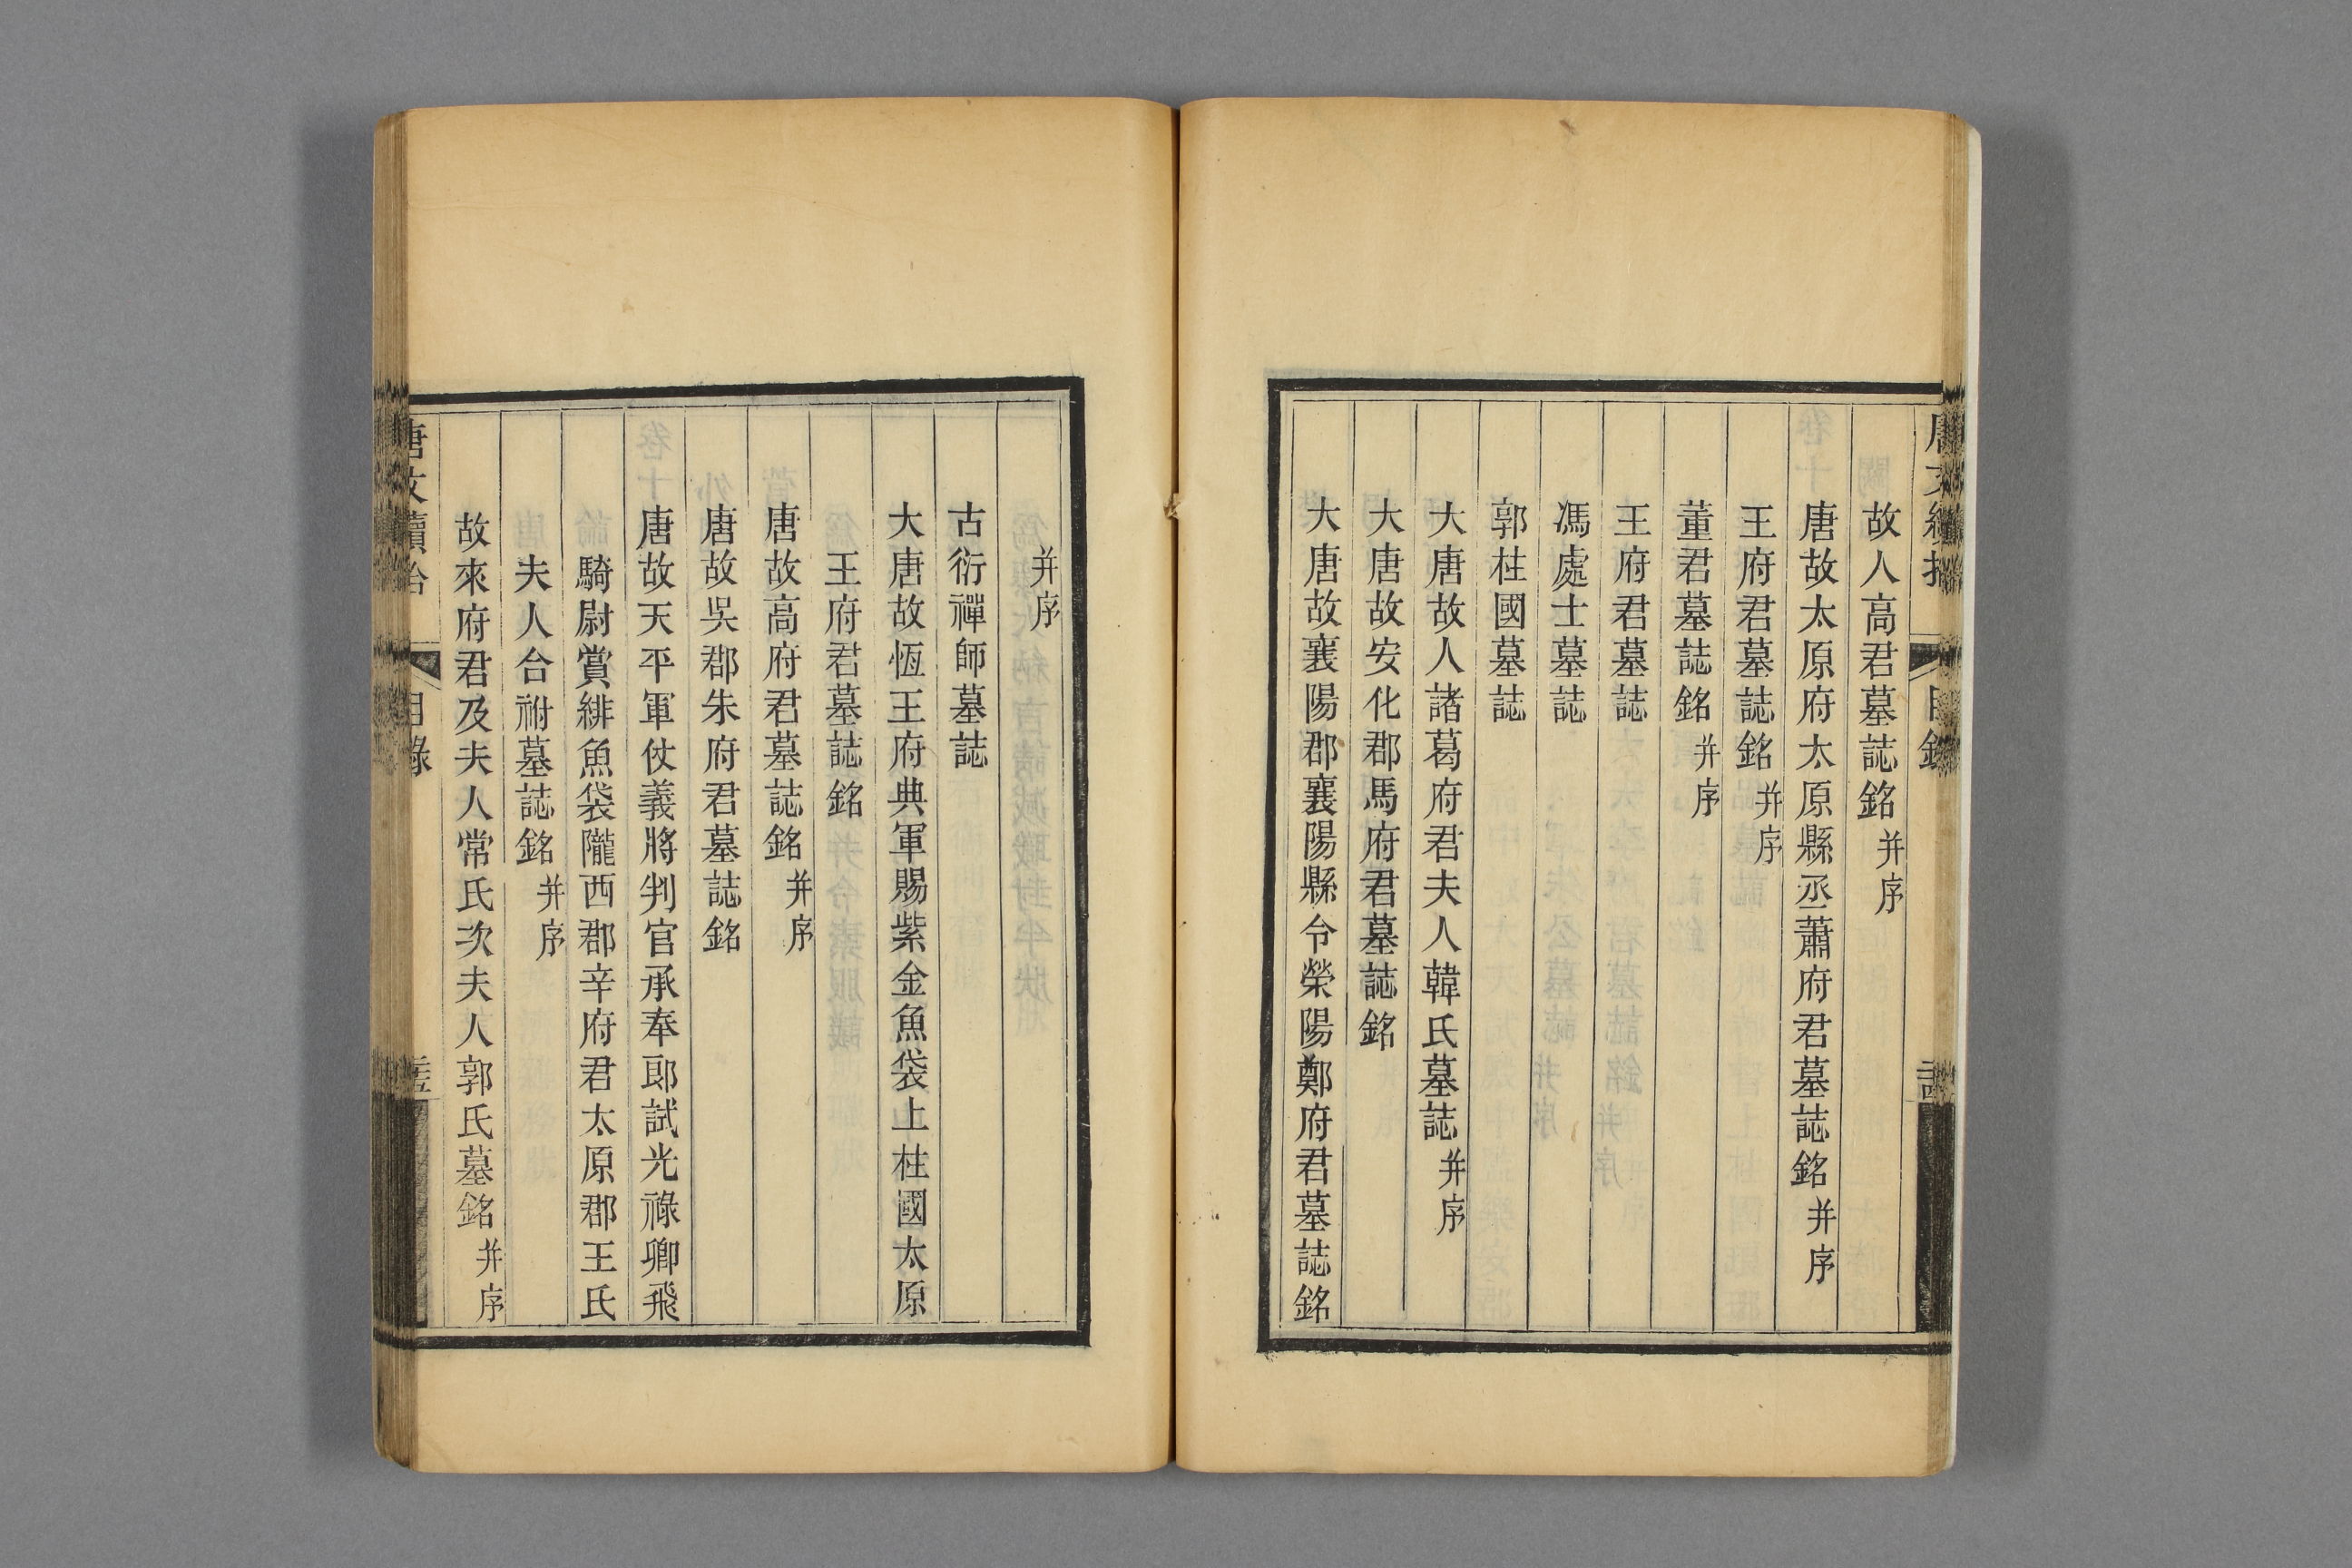 故人高君墓誌銘并序
唐故太原府太原縣丞蕭府君墓誌銘并序
王府君墓誌銘并序
董君墓誌銘并序
王府君墓誌
馮處士墓誌
郭柱國墓誌
大唐故人諸葛府君夫人韓氏墓誌并序
大唐故安化郡馬府君墓誌銘
大唐故襄陽郡襄陽縣令滎陽鄭府君墓誌銘
并序
古衍禪師墓誌
大唐故恆王府典軍賜紫金魚袋上柱國太原
王府君墓誌銘
唐故高府君墓誌銘并序
唐故吳郡朱府君墓誌銘
唐故天平軍仗義將判官承奉郎試光祿卿飛
騎尉賞緋魚袋隴西郡辛府君太原郡王氏
夫人合祔墓誌銘并序
故來府君及夫人常氏次夫人郭氏墓銘并序
唐文續拾
目錄